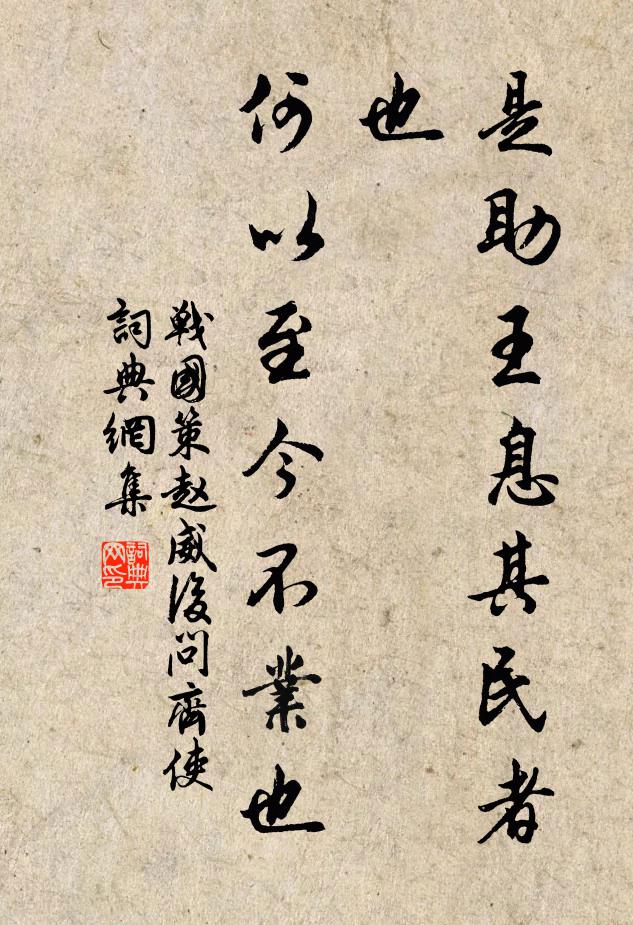 是助王息其民者
也
何以至今不業也
戰國策趙威後問齊使
詞典網集
詞典
网印